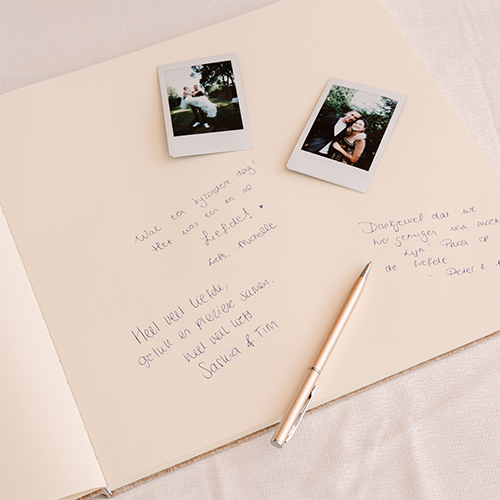 Wat een bijzondere dag!
Het was een en al
Liefde! ♥
Liefs. Michelle
Heel veel liefde,
geluk en plezier samen.
Heel veel liefs
Saskia & Tim
Dankjewel dat we
hier getuigen van moch
zijn! Proost op
de liefde
- Peter &